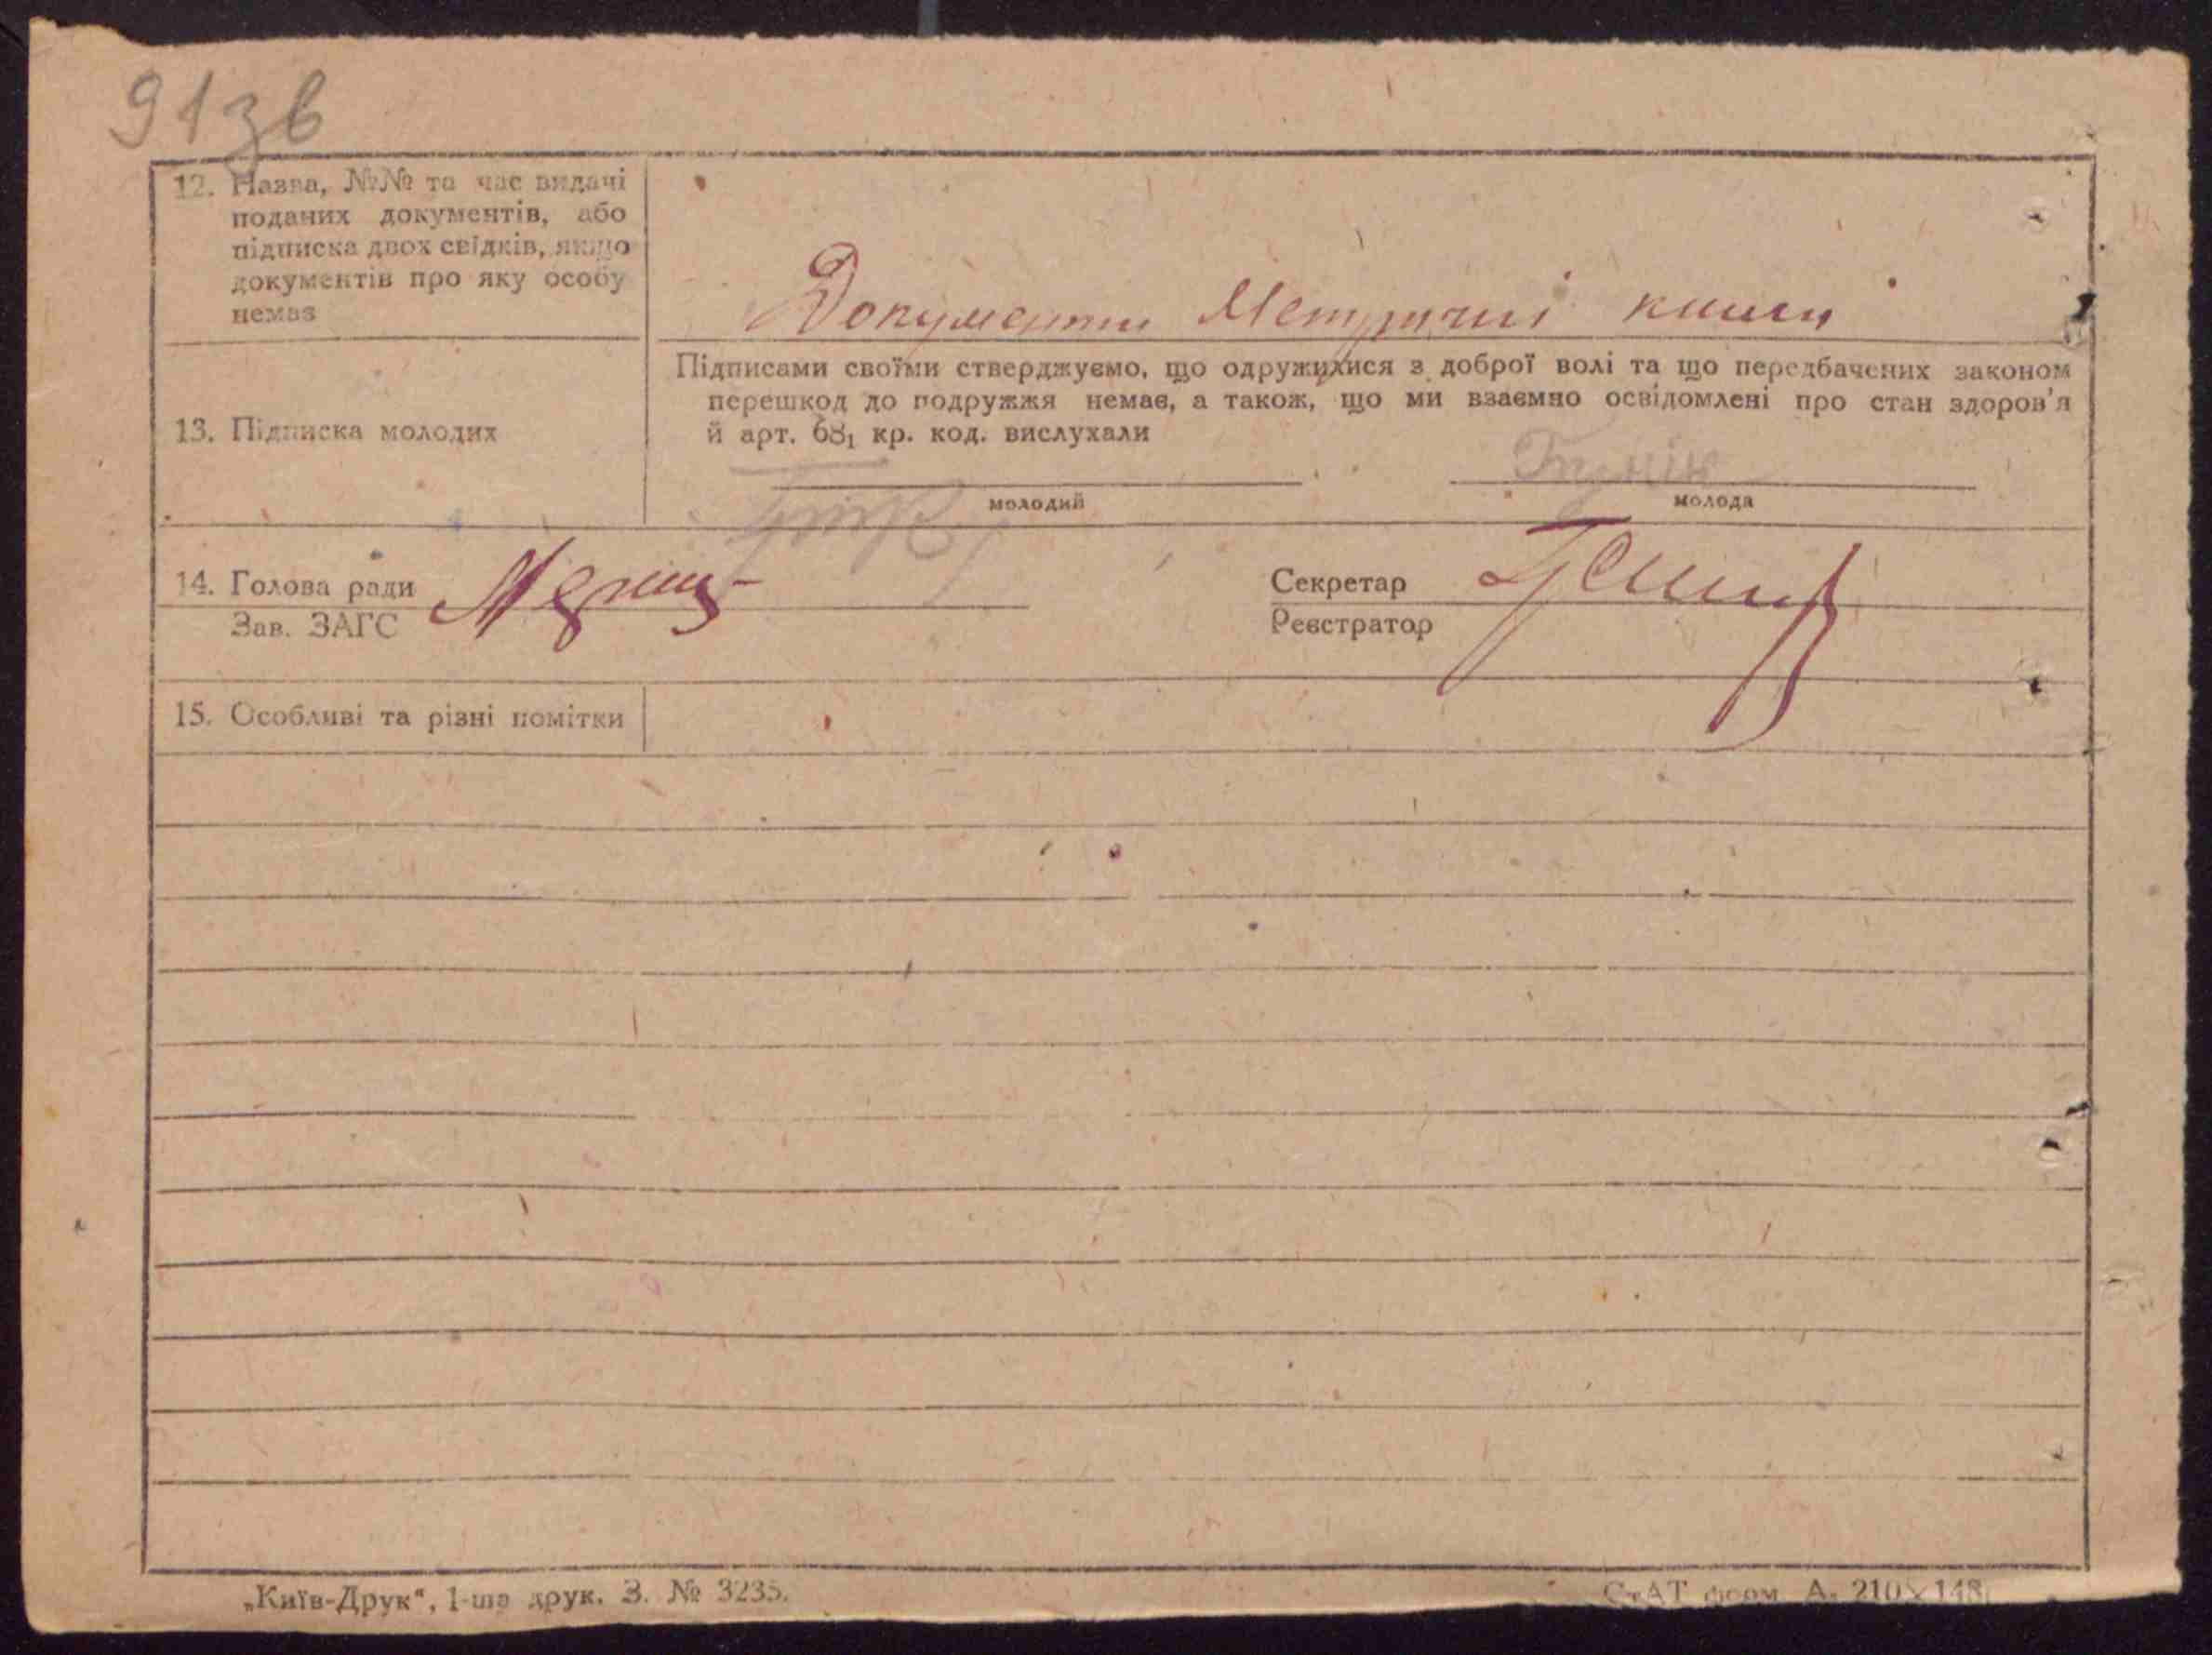 91зв
12. Назва, №№ та час видачі
поданих документів, або
підписка двох свідків, якщо
документів про яку особу
немає
Документи Метричні книги
13. Підписка молодих
Підписами своїми стверджуємо, що одружилися з доброї волі та що передбачених законом
перешкод до подружжя немає, а також, що ми взаємно освідомлені про стан здоров'я
й арт. 68₁ кр. код. вислухали
молодий
молода
14. Голова ради
Зав. ЗАГС
Секретар
Реєстратор
15. Особливі та різні помітки
„Київ-Друк“, 1-ша друк. З. № 3235.
СтАТ форм. А. 210×148